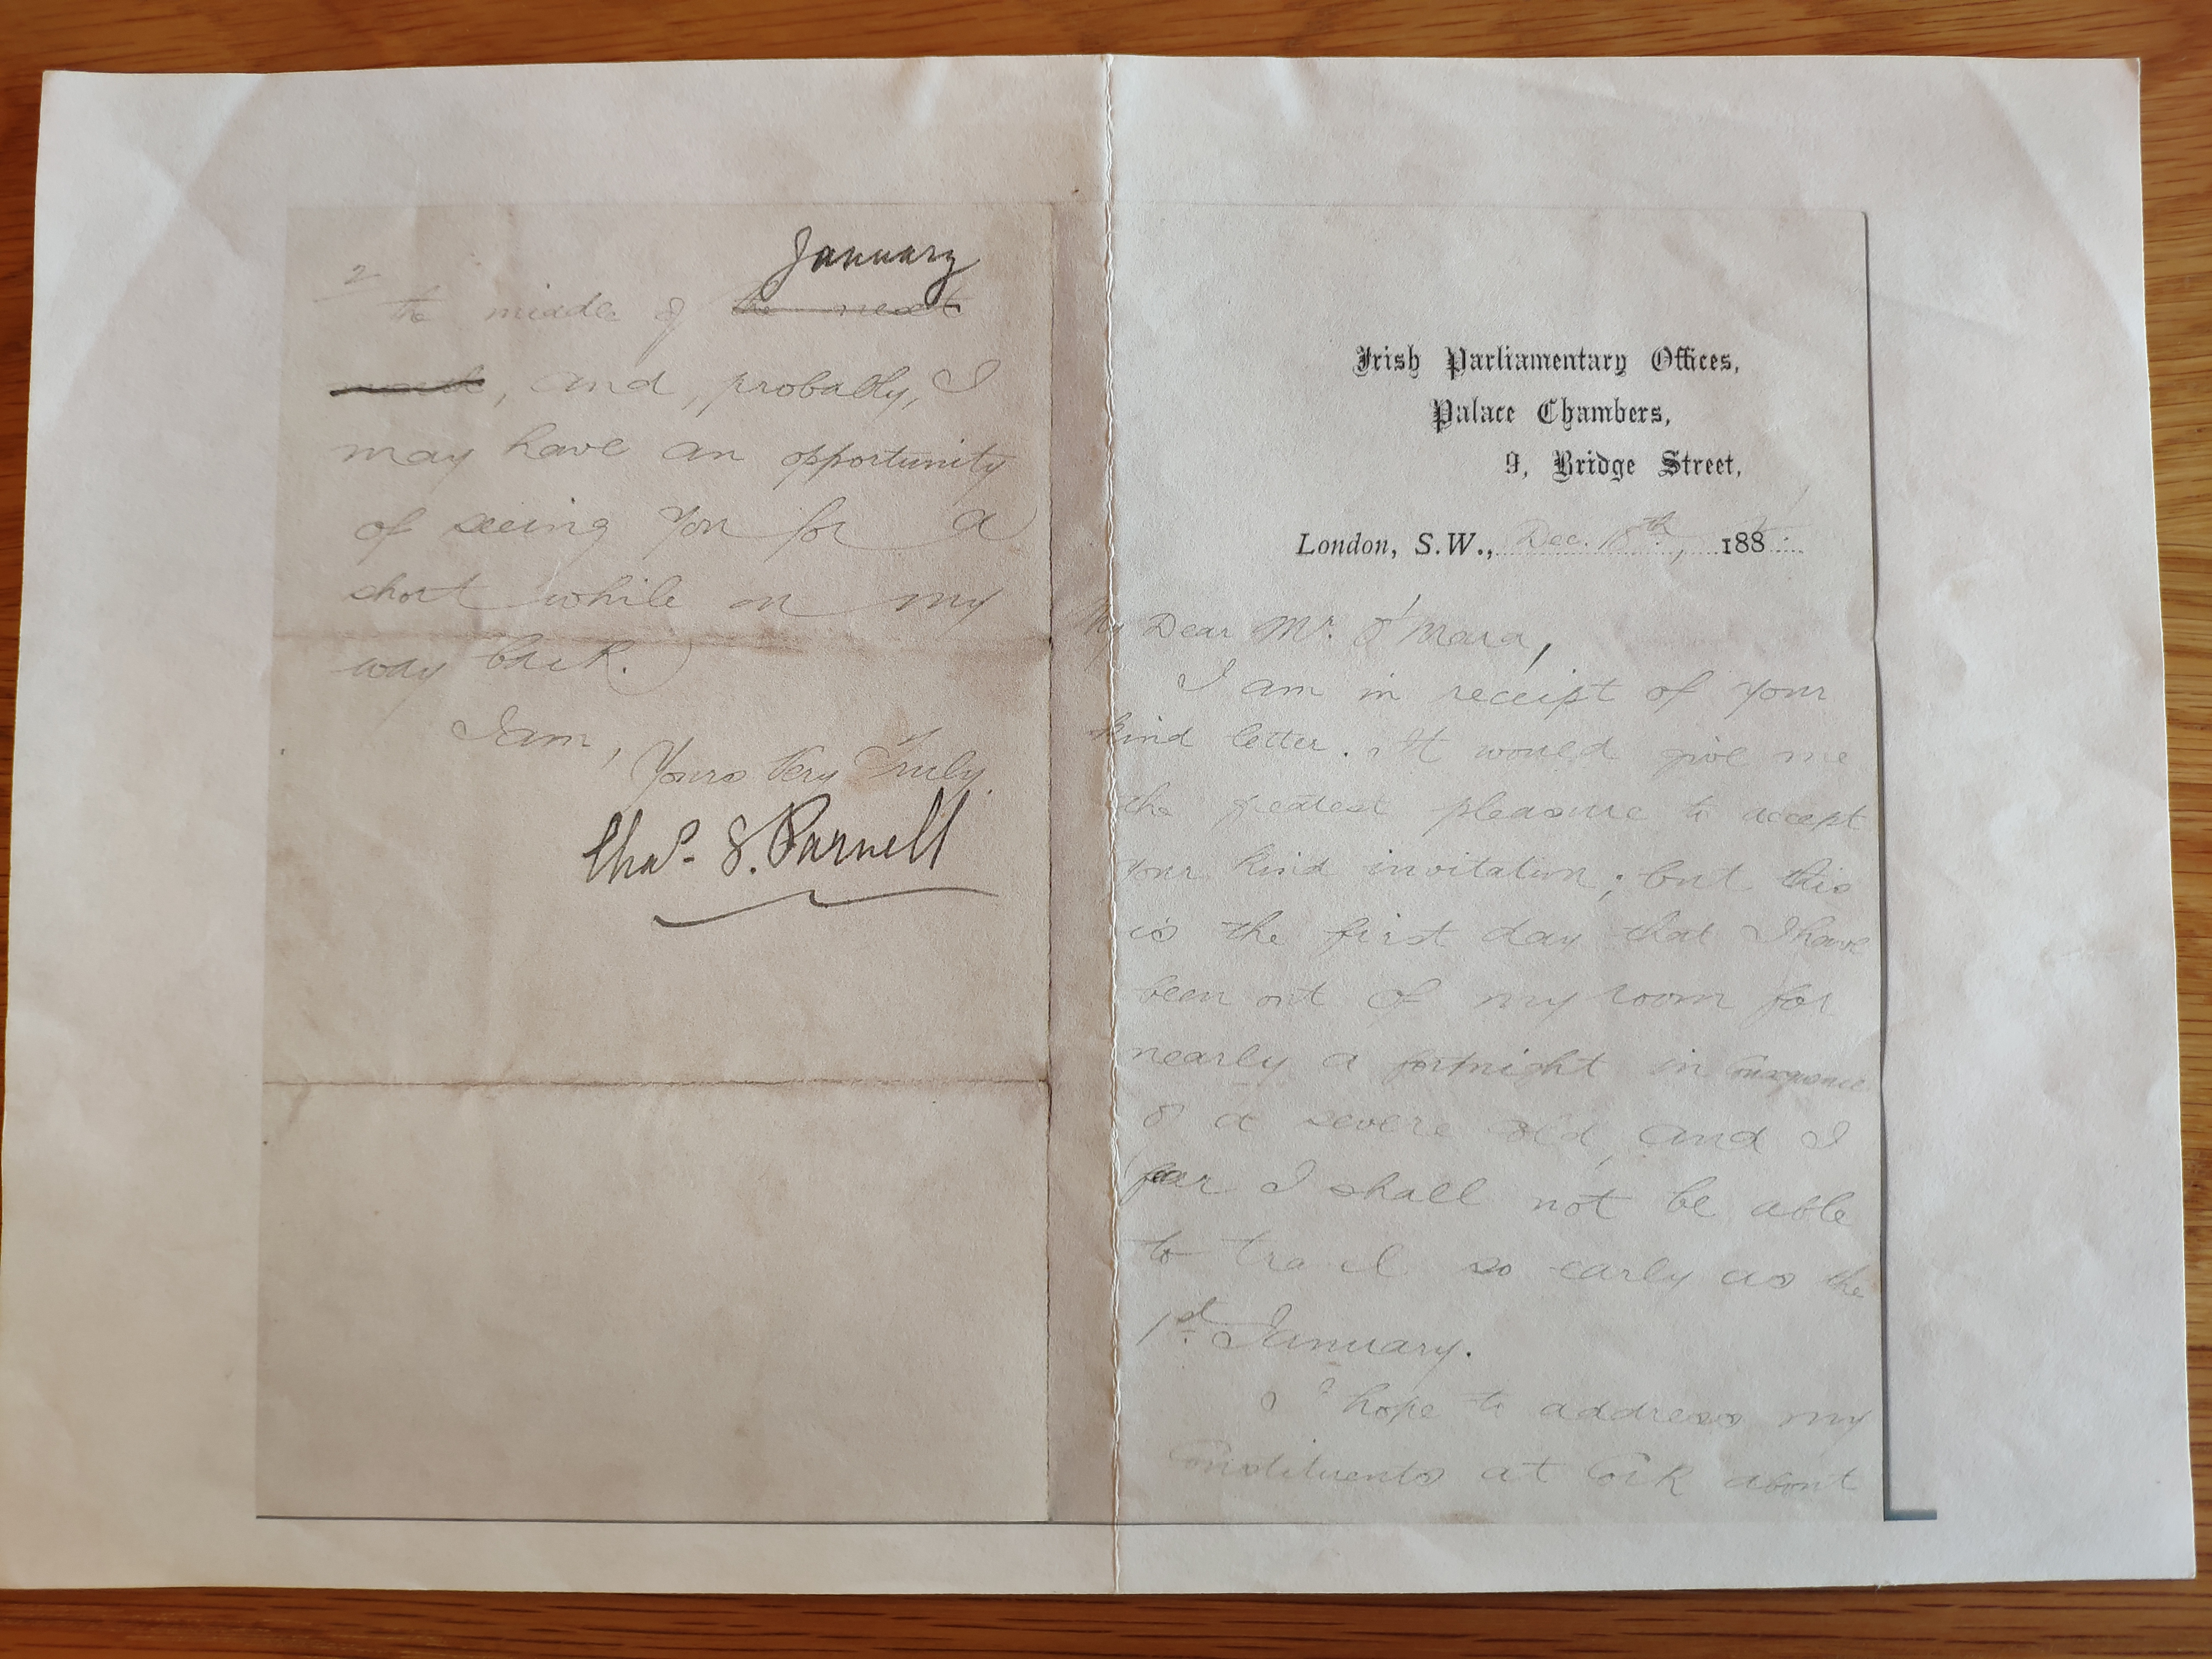 Irish Parliamentary Offices,
Palace Chambers,
9, Bridge Street,
London, S.W., Dec. 18th, 188
My Dear Mr. O'Mara,
I am in receipt of your
kind letter. It would give me
the greatest pleasure to accept
your kind invitation; but this
is the first day that I have
been out of my room for
nearly a fortnight in consequence
of a severe cold, and I
fear I shall not be able
to travel so early as the
1st January.
I hope to address my
Constituents at Cork about
2
January
the middle of the next
month, and, probably, I
may have an opportunity
of seeing you for a
short while on my
way back.
I am,
Yours Very Truly
Chas. S. Parnell